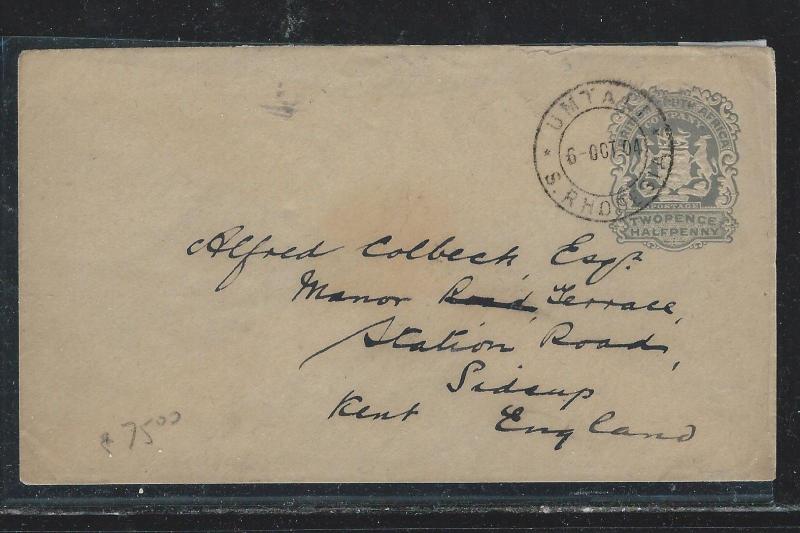 UMTALI
6-OCT 04
S. RHODESIA
SOUTH AFRICA
COMPANY
POSTAGE
TWOPENCE
HALFPENNY
Alfred Colbeck, Esqr.
Manor Road, Terrace,
Station Road,
Sidsup
Kent England
75 00